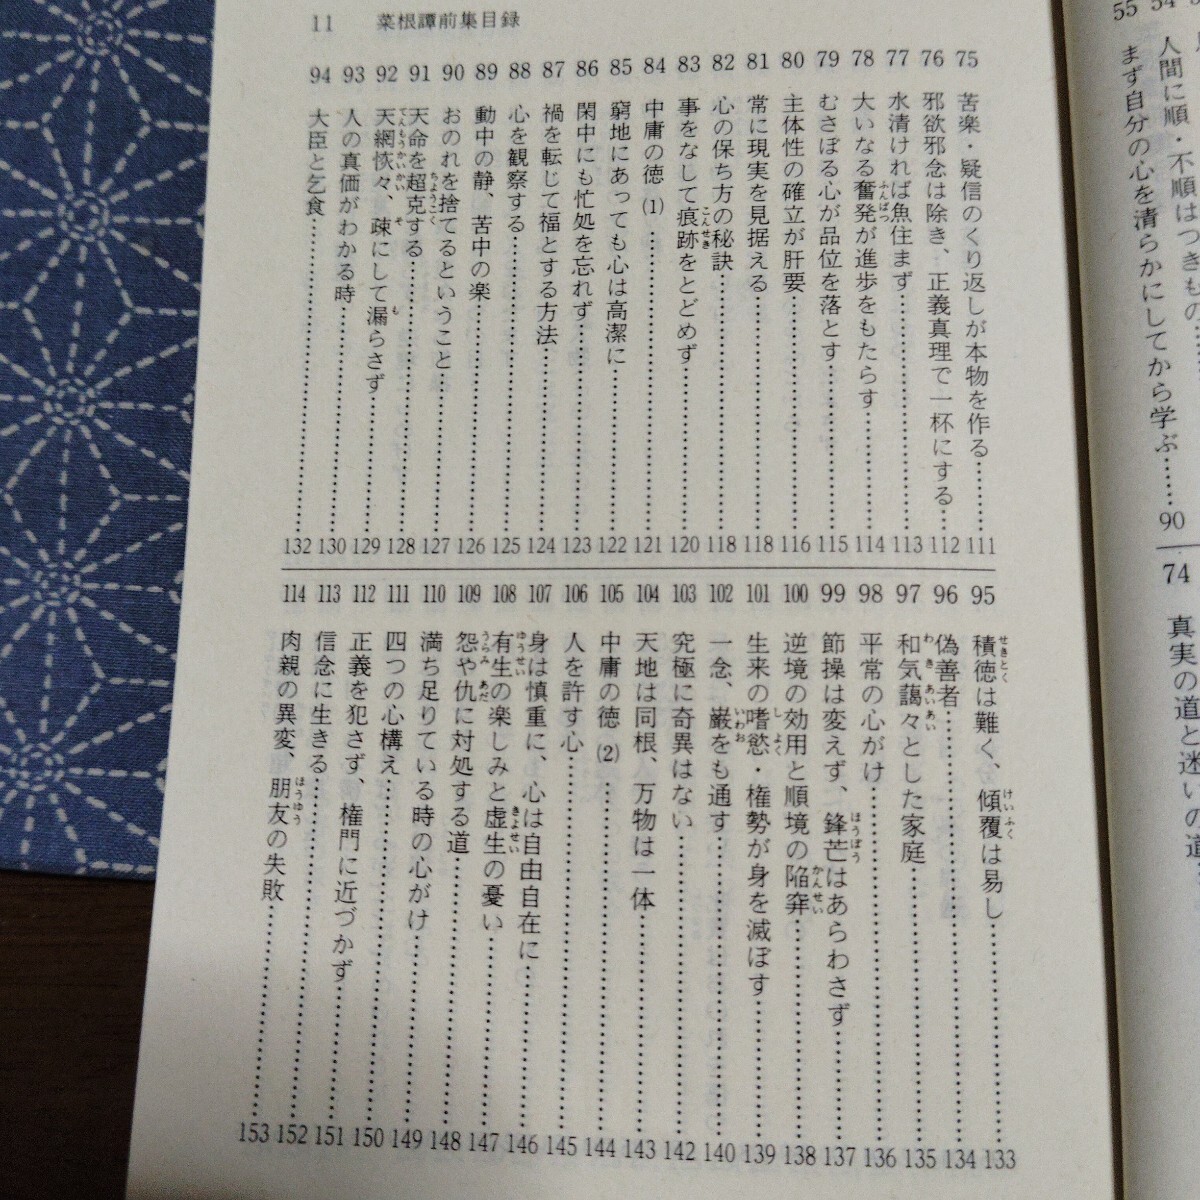 11 菜根譚前集目録
75 苦楽・疑信のくり返しが本物を作る……111
76 邪欲邪念は除き、正義真理で一杯にする……112
77 水清ければ魚住まず……113
78 大いなる奮発が進歩をもたらす……114
79 むさぼる心が品位を落とす……115
80 主体性の確立が肝要……116
81 常に現実を見据える……118
82 心の保ち方の秘訣……118
83 事をなして痕跡をとどめず……120
84 中庸の徳(1)……121
85 窮地にあっても心は高潔に……122
86 閑中にも忙処を忘れず……123
87 禍を転じて福とする方法……124
88 心を観察する……125
89 動中の静、苦中の楽……126
90 おのれを捨てるということ……127
91 天命を超克する……128
92 天網恢々、疎にして漏らさず……129
93 人の真価がわかる時……130
94 大臣と乞食……132
95 積徳は難く、傾覆は易し……133
96 偽善者……134
97 和気藹々とした家庭……135
98 平常の心がけ……136
99 節操は変えず、鋒芒はあらわさず……137
100 逆境の効用と順境の陥穽……138
101 生来の嗜慾・権勢が身を滅ぼす……139
102 一念、巌をも通す……140
103 究極に奇異はない……142
104 天地は同根、万物は一体……143
105 中庸の徳(2)……144
106 人を許す心……145
107 身は慎重に、心は自由自在に……146
108 有生の楽しみと虚生の憂い……147
109 怨や仇に対処する道……148
110 満ち足りている時の心がけ……149
111 四つの心構え……150
112 正義を犯さず、権門に近づかず……151
113 信念に生きる……152
114 肉親の異変、朋友の失敗……153
54 人間に順・不順はつきもの
55 まず自分の心を清らかにしてから学ぶ……90
74 真実の道と迷いの道